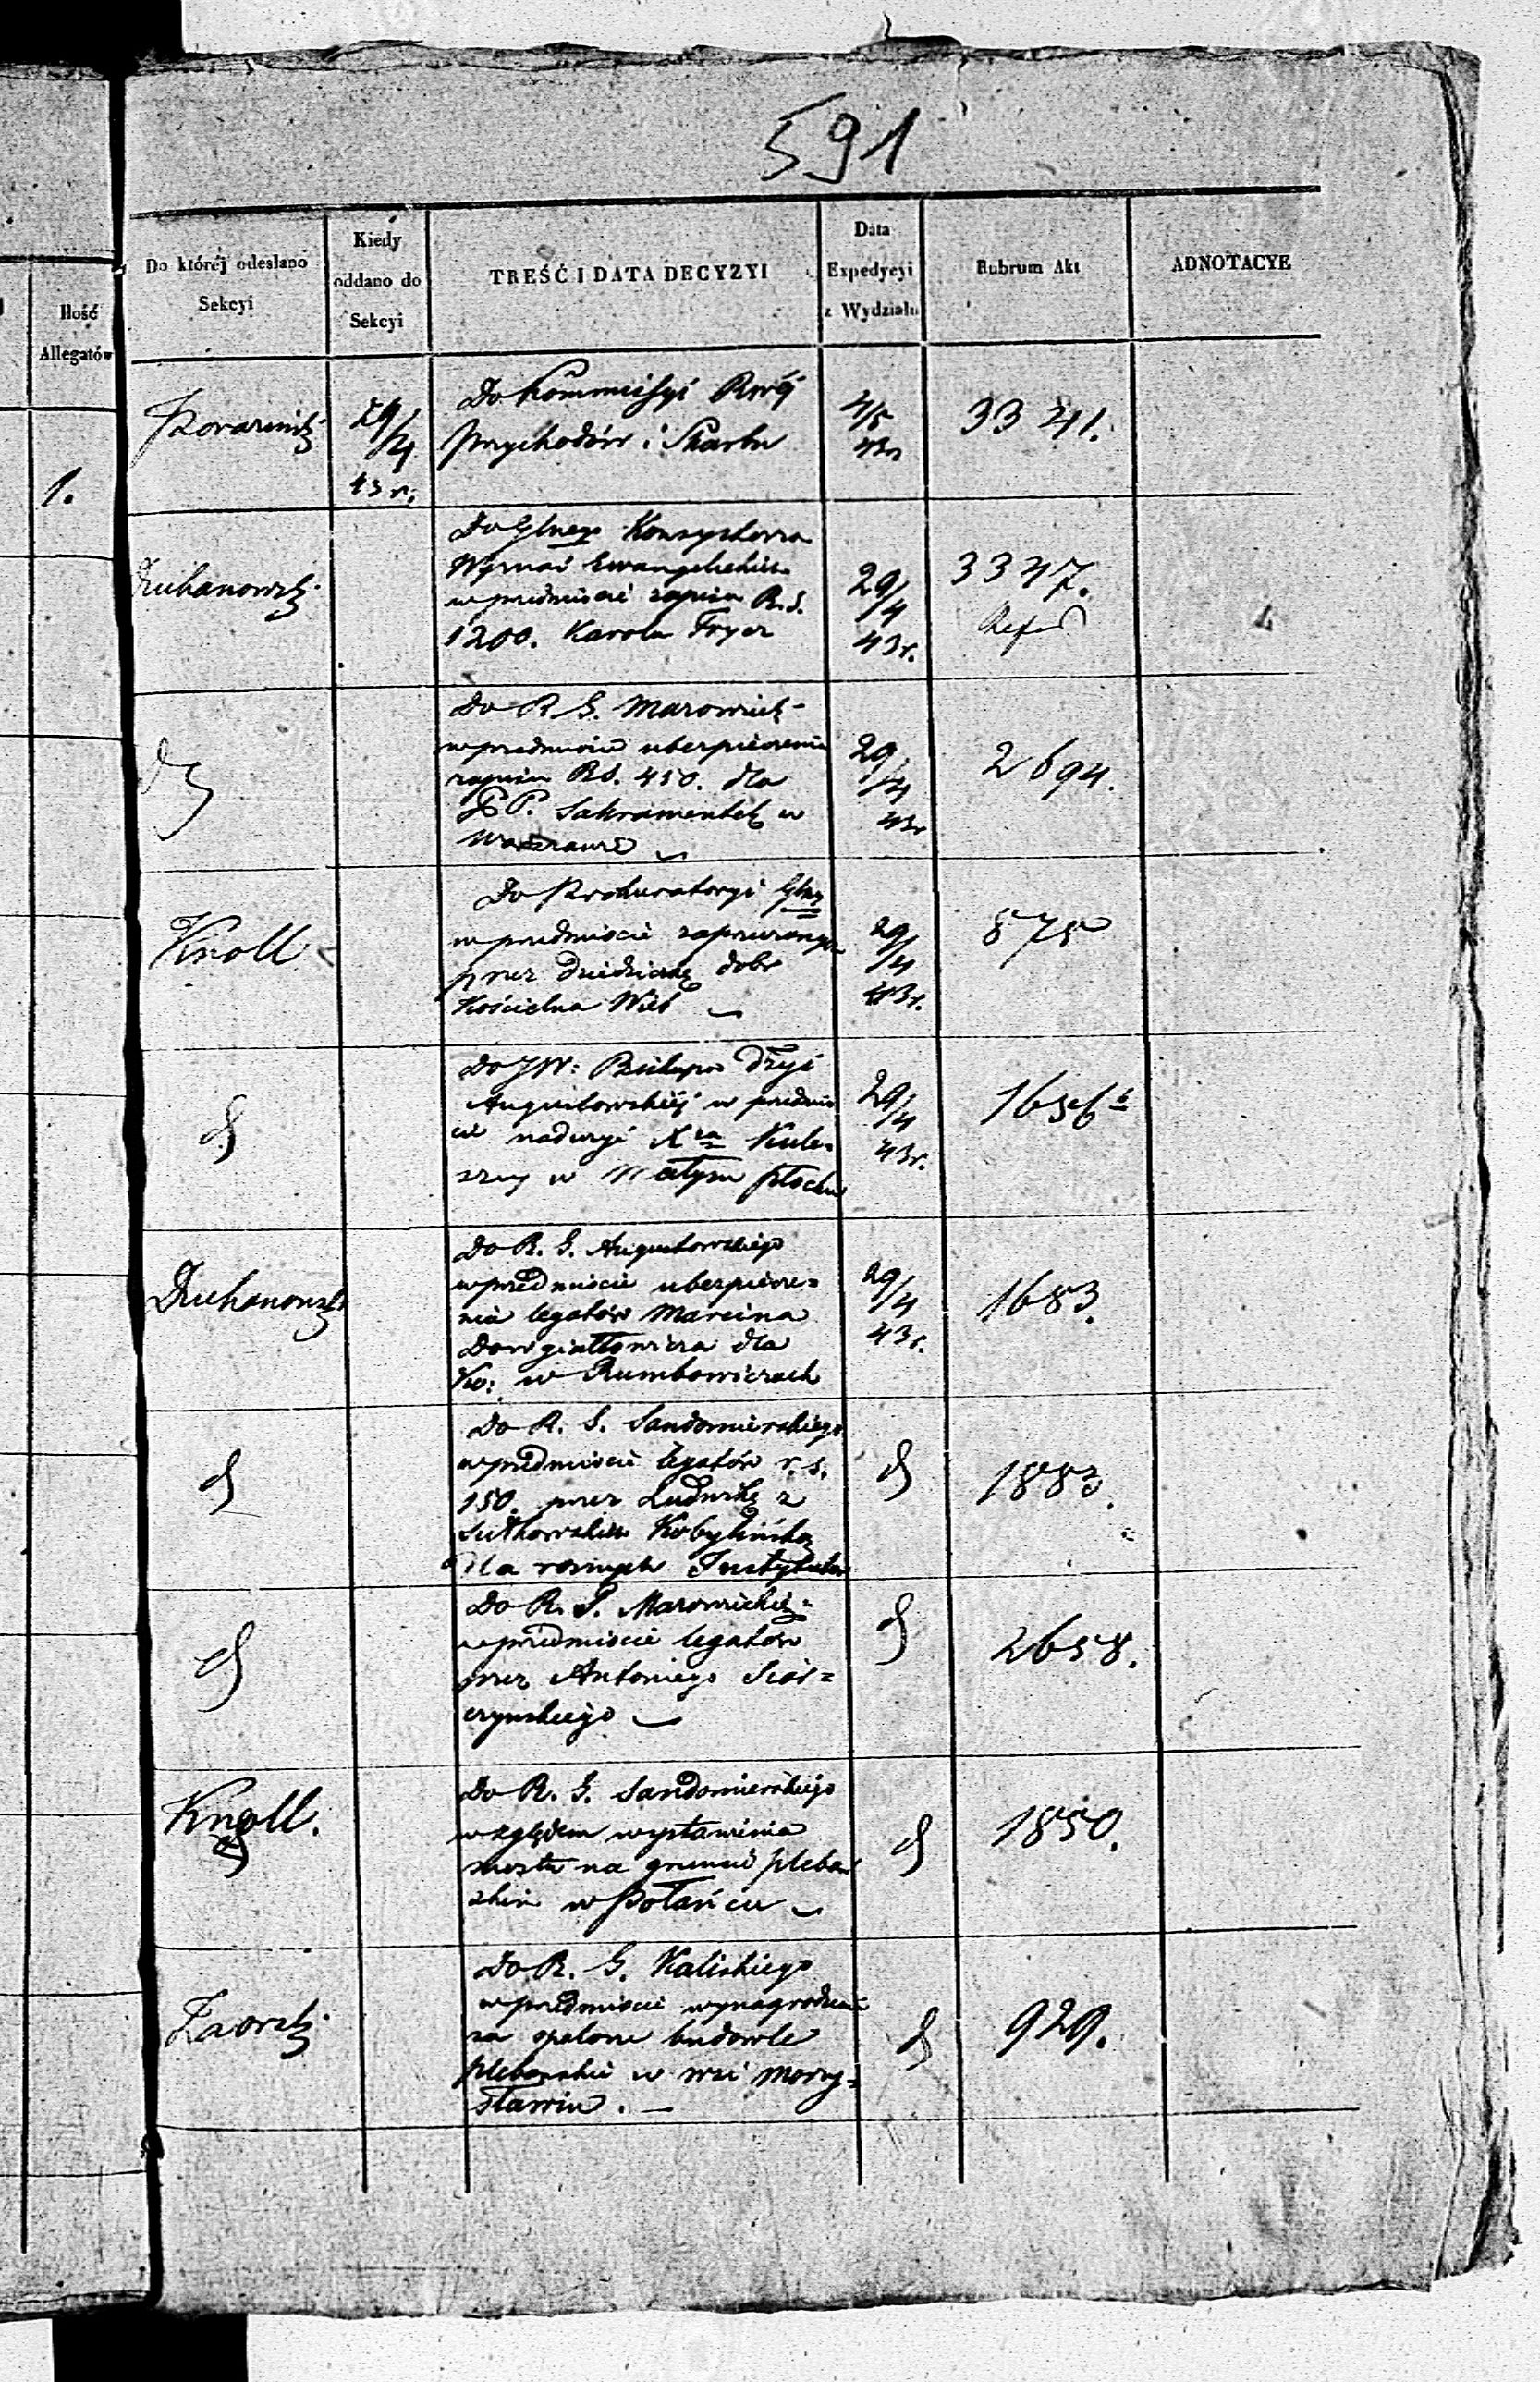 591
Ilość
Allegatów
1.
Do któréj odesłano
Sekcyi
Kiedy
oddano do
Sekcyi
TREŚĆ I DATA DECYZYI
Data
Expedycyi
z Wydziału
Rubrum Akt
ADNOTACYE
29/4
43 r.
Do Kommissyi Rwéj
Przychodów i Skarbu
4/5
43r
3341.
Do Głnego Konsystorza
Wyznań Ewangelickich
w przedmiocie zapisu R.S.
1200. Karola Fryer
29/4
43r.
3347.
Do R. G. Mazowieck
w przedmiocie ubezpieczenia
zapisu RS. 450. dla
PP. Sakramentek w
Warszawie
29/4
43r
2694.
Knoll
Do Prokuratoryi Głnéj
w przedmiocie
przez dziedziczkę dobr
Kościelna Wieś
29/4
43r.
875
Do JW: Biskupa Dyi
Augustowskiéj w przedmio
cie naduzyć Xa Kule-
szy w Małym Płocku
29/4
43r.
1656
Duchanowski
Do R. G. Augustowskiego
w przedmiocie ubezpiecze=
nia legatów Marcina
Dowgiałłowicza dla
Ko: w Rumbowiczach
29/4
43r.
1683.
d
Do R. G. Sandomierskiego
w przedmiocie legatów r. s.
150. przez Ludwikę z
Sutkowskich Kobylińską
dla rożnych Instytutów
d
1883.
d
Do R. G. Mazowieckie=
w przedmiocie legatów
przez Antoniego Siar=
czyńskiego
d
2658.
Knoll.
Do R. G. Sandomierskiego
względem wystawienia
mostu na gruncie plebań
skim w Połańcu
d
1850.
Zaorski
Do R. G. Kaliskiego
w przedmiocie wynagrodzenia
za spalone budowle
plebańskie w wsi Morzy=
sławiu.
d
929.